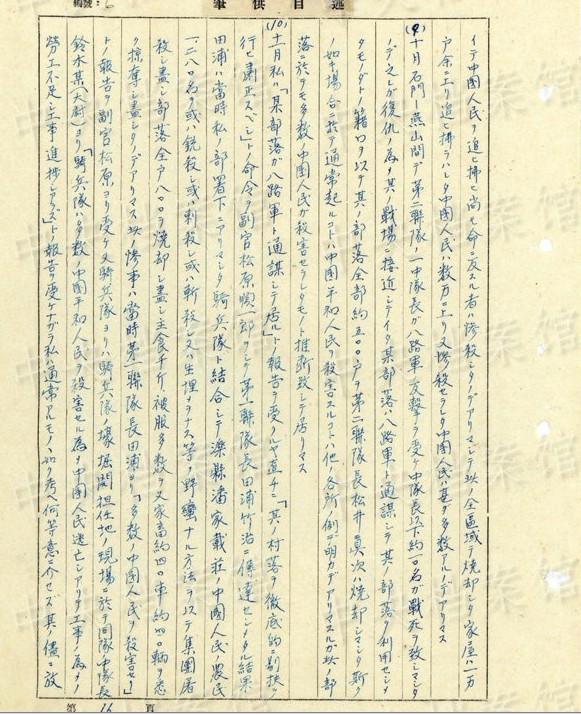 筆供述自
イテ中国人民ヲ追ヒ掃ヒ尚モ命ニ反スル者ハ惨殺シタノデアリマシテ此ノ全区域デ焼却シタ家屋ハ一万
戸余ニ上リ追ヒ掃ラハレタ中国人民ハ数万ニ上リ又惨殺セラレタ中国人民ハ甚ダ多数アルノデアリマス
(9)十月石門—燕山間デ第二聯隊ノ一中隊長ガ八路軍ノ反撃ヲ受ケ中隊長以下約一〇名ガ戦死ヲ致シマシタ
ノデ之レガ復仇ノ為メ其ノ戦場ニ接近シテイタ某部落ハ八路軍ト通謀シテ其ノ部落ヲ利用セシメ
タモノダトノ籍口ヲ以テ其ノ部落全部約五〇〇戸ヲ第二聯隊長松井真次ハ焼却シマシタ斯ク
ノ如キ場合ニ於テ通常起ルコトハ中国平和人民ヲ殺害スルコトハ他ノ各所ノ例デ明カデアリマスルガ此ノ部
落ニ於テモ多数ノ中国人民ガ殺害セラレタモノト推断致シテ居リマス
(10)十一月私ハ「某部落ガ八路軍ト通謀シテ居ル」トノ報告ヲ受クルヤ直チニ「其ノ村落ヲ徹底的ニ剔抉
行シ粛正スベシ」トノ命令ヲ副官松原順一郎ヲシテ第一聯隊長田浦竹治ニ傳達セシメタル結果
田浦ハ当時私ノ部署下ニアリマシタ騎兵隊ト結合シテ灤縣潘家戴荘ノ中国人民ノ農民
一、二八〇名ヲ或ハ銃殺シ或ハ刺殺シ或ハ斬殺シ又ハ生埋メヲナス等ノ野蛮ナル方法ヲ以テ集團屠
殺シ盡シ部落全戸八〇〇ヲ焼却シ盡シ主食千斤、被服多数ヲ又家畜約四〇車約四〇輌ヲ悉
ク掠奪シ盡シタノデアリマス此ノ惨事ハ当時第一聯隊長田浦ヨリ「多数ノ中国人民ヲ殺害セリ」
トノ報告ヲ副官松原ヨリ受ケ又騎兵隊ヨリ騎兵隊ノ壕掘開担任地ノ現場ニ於テ同隊中隊長
鈴木某(大尉)ヨリ「騎兵隊ハ多数ノ中国平和人民ヲ殺害セル為メ中国人民逃亡シアリテ工事ノ為メノ
勞工不足シ工事ノ進捗シアラズ」トノ報告ヲ受ケナガラ私ハ通常アルモノノ如ク考ヘ何等意ニ介セズ其ノ儘ニ放
第16頁